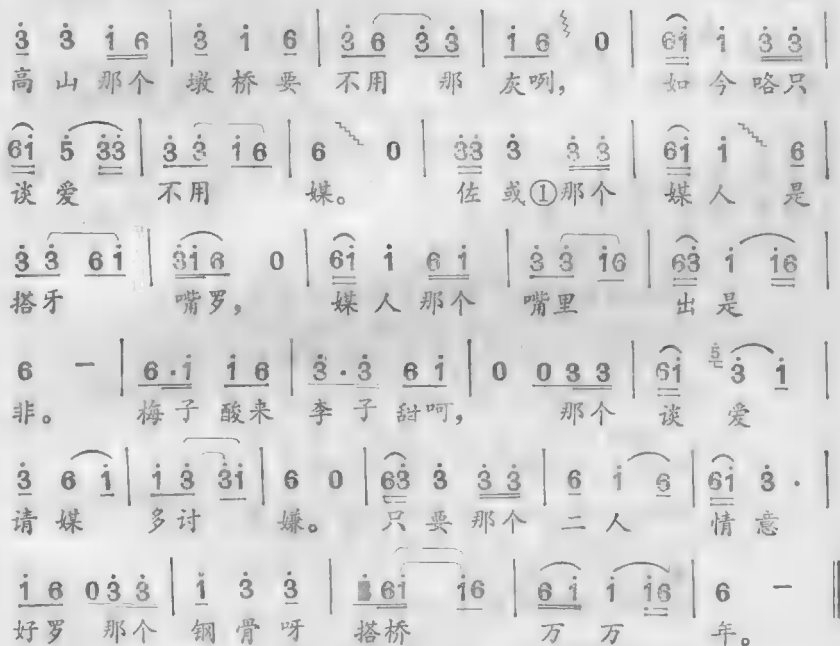 3 3 1 6 | 3 1 6 | 3 6 3 3 | 1 6 0 | 6 1 1 3 3 |
高山那个 墩桥要 不用那 灰咧, 如今咯只
6 1 5 3 3 | 3 3 1 6 | 6 0 | 3 3 3 3 3 | 6 1 1 6 |
谈爱 不用 媒。 佐或①那个 媒人是
3 3 6 1 | 3 1 6 0 | 6 1 1 6 1 | 3 3 1 6 | 6 3 1 1 6 |
搭牙 嘴罗, 媒人那个 嘴里 出是
6 - | 6 · 1 1 6 | 3 · 3 6 1 | 0 0 3 3 | 6 1 5 3 1 |
非。 梅子酸来 李子甜呵, 那个 谈爱
3 6 1 | 1 3 3 1 | 6 0 | 6 3 3 3 3 | 6 1 6 | 6 1 3 · |
请媒 多讨 嫌。 只要那个 二人 情意
1 6 0 3 3 | 1 3 3 | 6 1 1 6 | 6 1 1 1 6 | 6 - ‖
好罗 那个 钢骨呀 搭桥 万万 年。